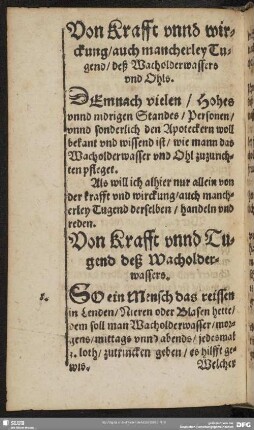 Von Krafft vnnd wir-
ckung/auch mancherley Tu-
gend/deß Wacholderwassers
vnd Ohls.
DEmnach vielen / Hohes
vnnd nidrigen Standes / Personen/
vnnd sonderlich den Apoteckern woll
bekant vnd wissend ist / wie mann das
Wacholderwasser vnd Ohl zuzurich-
ten pfleget.
Als will ich alhier nur allein von
der krafft vnd wirckung/auch manch-
erley Tugend derselben / handeln vnd
reden.
Von Krafft vnnd Tu-
gend deß Wacholder-
wassers.
1.
SO ein Mensch das reissen
in Lenden/Nieren oder Blasen hette/
dem soll man Wacholderwasser/mor-
gens/mittags vnnd abends/jedesmal
3. loth/zutrincken geben/es hilfft ge-
wis.
Welcher
SLUB